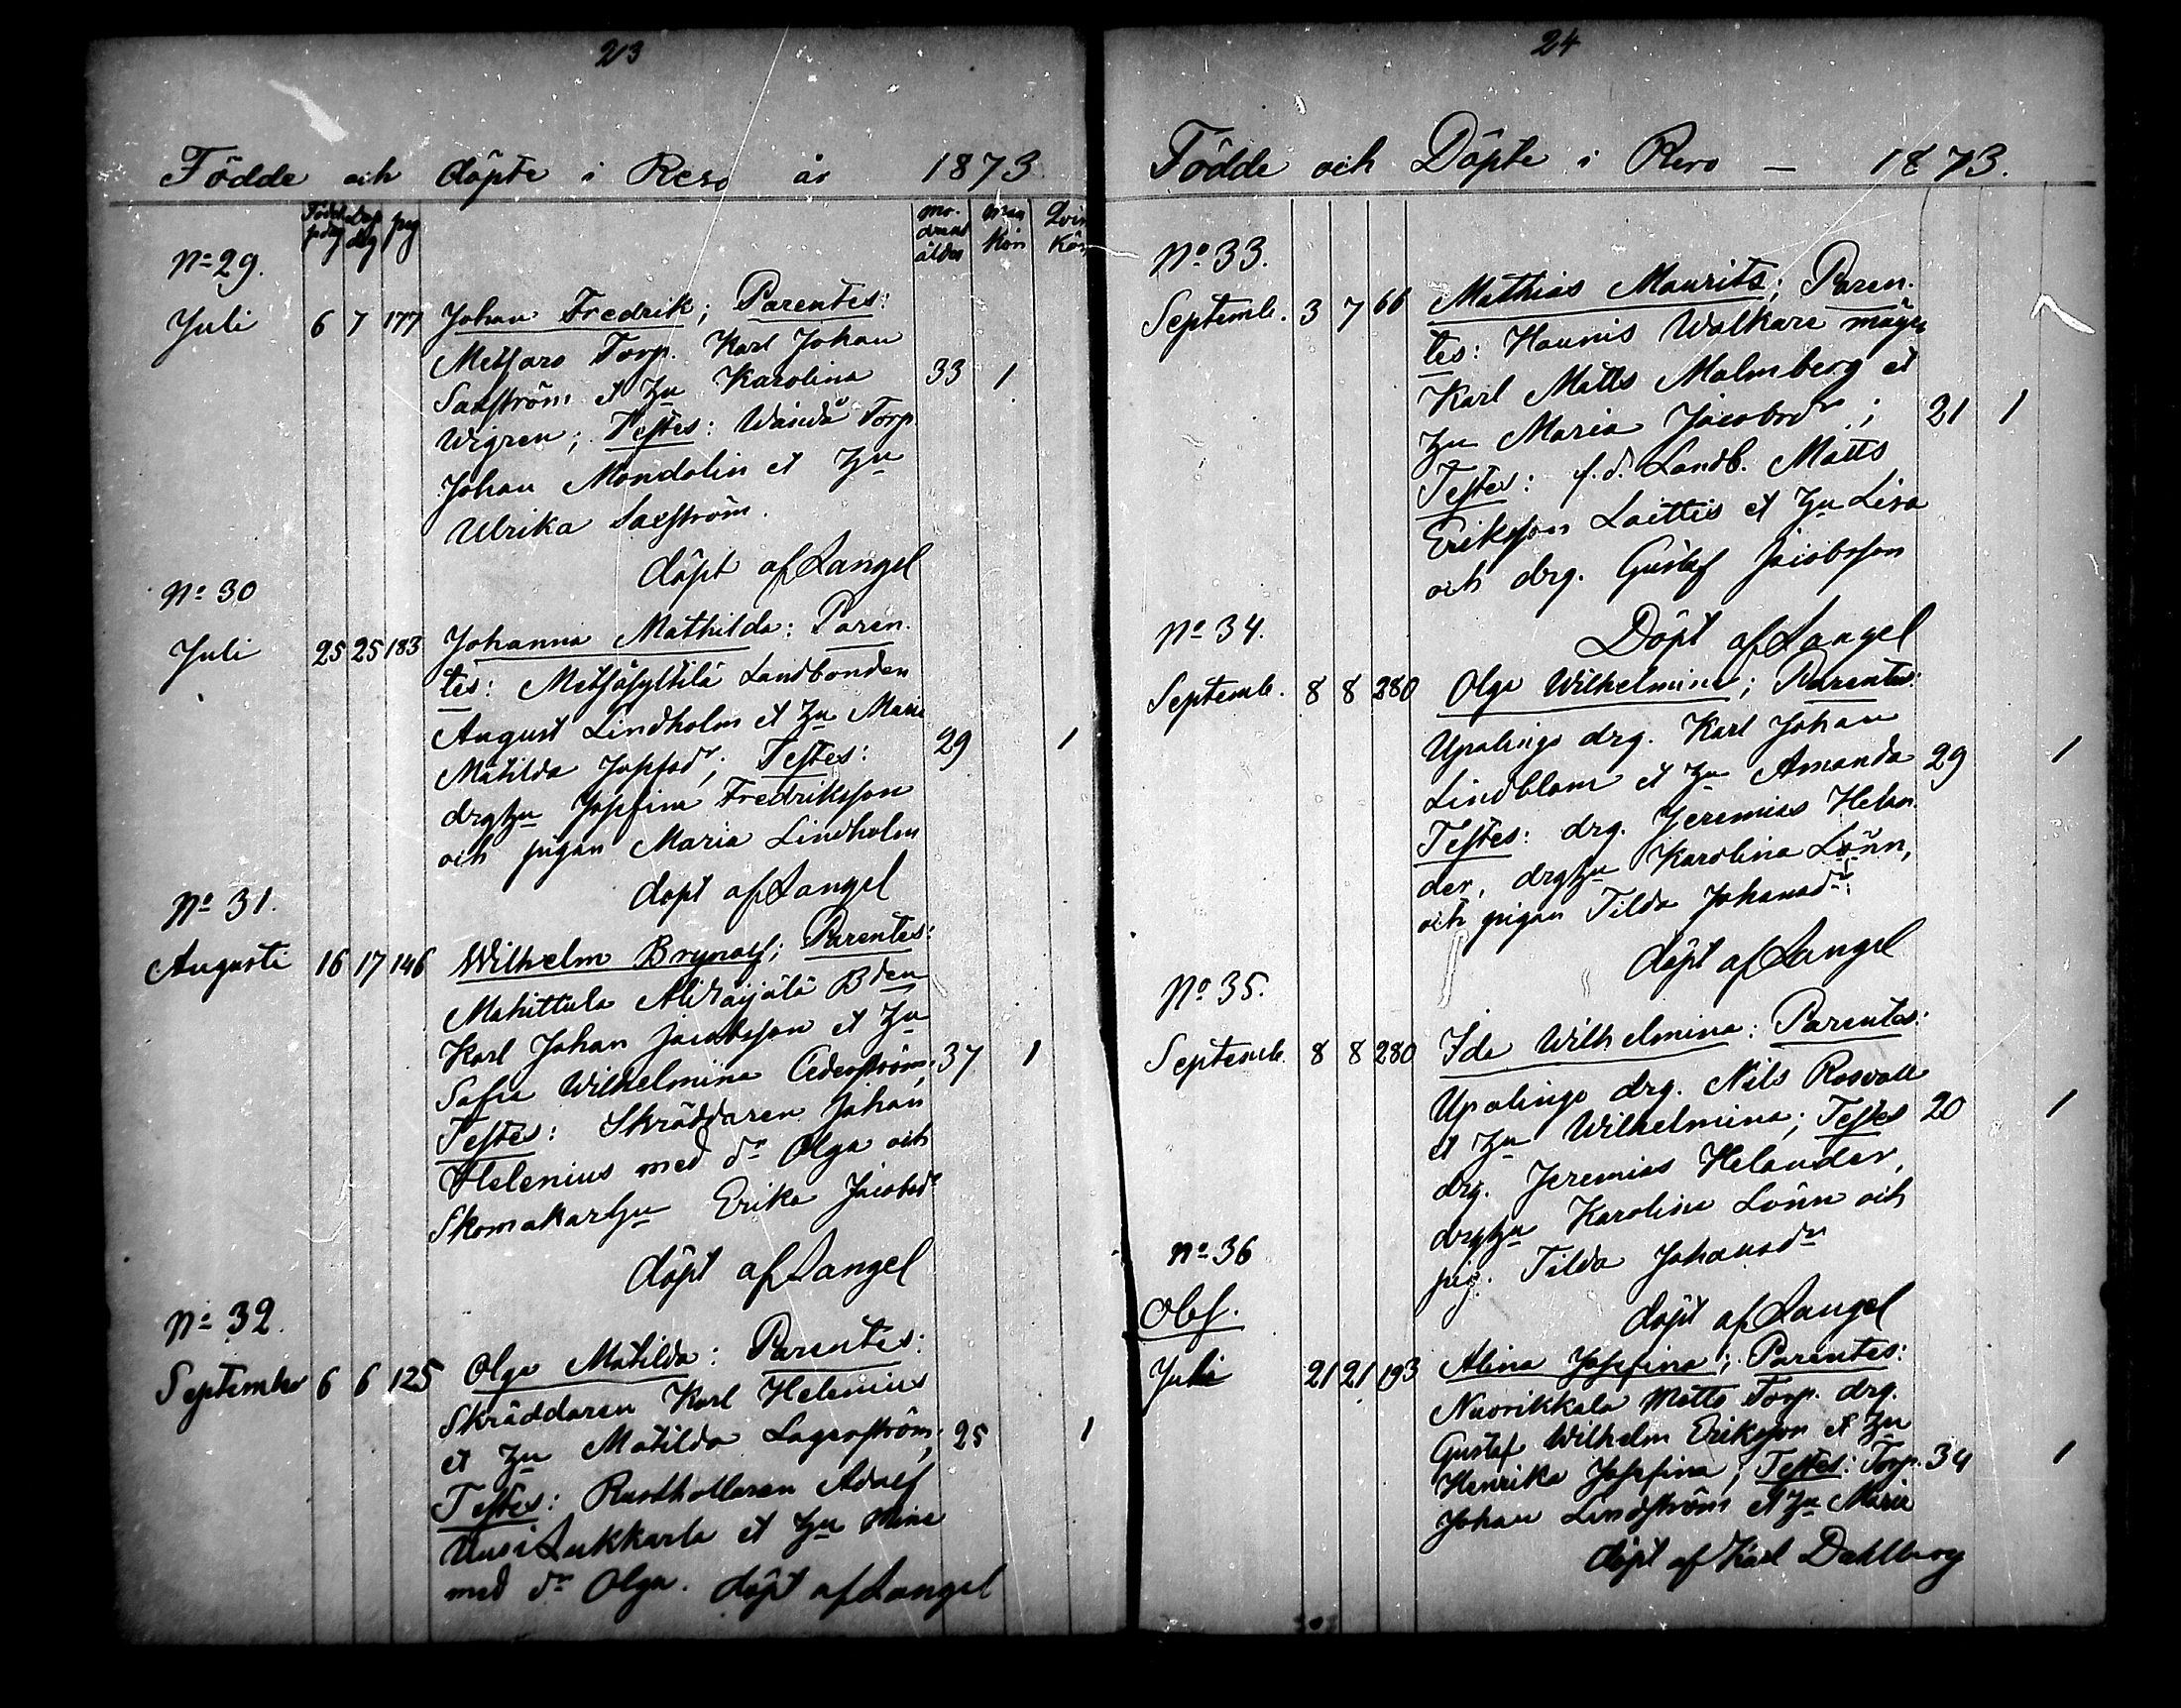 23
Födde och döpte i Reso år 1873.
Född. pdag Döp dag pag mo- drens ålder man kön Qvin Kön
No 29.
Juli 6 7 177 Johan Fredrik; Parentes:
Metsaro Torp. Karl Johan
Saxström et hu Karolina 33 1
Wigren; Testes: Wändå Torp
Johan Mondolin et hu
Ulrika Saxström.
döpt af Langel
No 30
Juli 25 25 183 Johanna Mathilda: Paren-
tes: Metsäsyltilä Landbonden
August Lindholm et hu Maria
Matilda Josefsdr; Testes: 29 1
drghu Josefina Fredriksson
och pigan Maria Lindholm
döpt af Langel
No 31.
Augusti 16 17 146 Wilhelm Brynolf; Parentes:
Mahittula Alikaijälä Bden
Karl Johan Jacobsson et hu
Sofia Wilhelmina Cederström; 37 1
Testes: Skräddaren Johan
Helenius med dr Olga och
Skomakarhu Erika Jacobsdr
döpt af Langel
No 32.
September 6 6 125 Olga Matilda: Parentes:
Skräddaren Karl Helenius
et hu Matilda Lagerström; 25 1
Testes: Rusthollaren Adolf
Uusi Lukkarla et hu Mina
med dr Olga. döpt af Langel
24
Födde och Döpte i Reso – 1873.
No 33.
Septemb. 3 7 66 Mathias Maurits; Paren-
tes: Haunis Walkare mågen
Karl Matts Malmberg et
hu Maria Jacobsdr; 21 1
Testes: f.d. Landb. Matts
Eriksson Laittis et hu Lisa
och drg. Gustaf Jacobsson
Döpt af Langel
No 34.
Septemb. 8 8 280 Olga Wilhelmina; Parentes:
Upalingo drg. Karl Johan
Lindblom et hu Amanda 29 1
Testes: drg. Jeremias Helan-
der, drghu Karolina Lönn,
och pigan Tilda Johansdr.
döpt af Langel
No 35.
Septemb. 8 8 280 Ida Wilhelmina: Parentes:
Upalingo drg. Nils Rosvall
et hu Wilhelmina; Testes 20 1
drg. Jeremias Helander,
drghu Karolina Lönn och
pig. Tilda Johansdr
döpt af Langel
No 36
Obs.
Juli 21 21 193 Alina Josefina; Parentes:
Nuorikkala Matts Torp. drg.
Gustaf Wilhelm Eriksson et hu
Henrika Josefina; Testes: Torp. 34 1
Johan Lindström et hu Maria
döpt af Karl Dahlberg